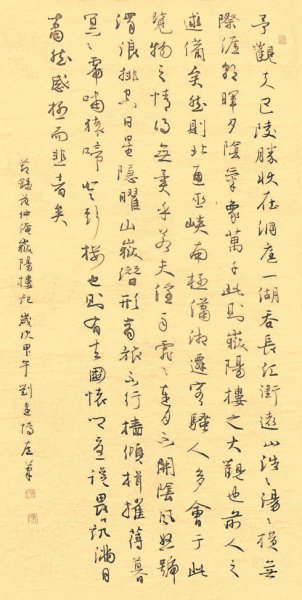 予觀夫巴陵勝狀在洞庭一湖吞長江銜遠山浩〻湯〻橫無
際涯朝暉夕陰氣象萬千此則嶽陽樓之大觀也前人之
述備矣然則北通巫峽南極瀟湘遷客騷人多會于此
覽物之情得無異乎若夫淫雨霏〻連月不開陰風怒號
濁浪排空日星隱曜山嶽潛形商旅不行檣傾楫摧薄暮
冥〻虎嘯猿啼登斯樓也則有去國懷鄉憂讒畏譏滿目
蕭然感極而悲者矣
節錄范仲淹嶽陽樓記歲次甲午劉左筆